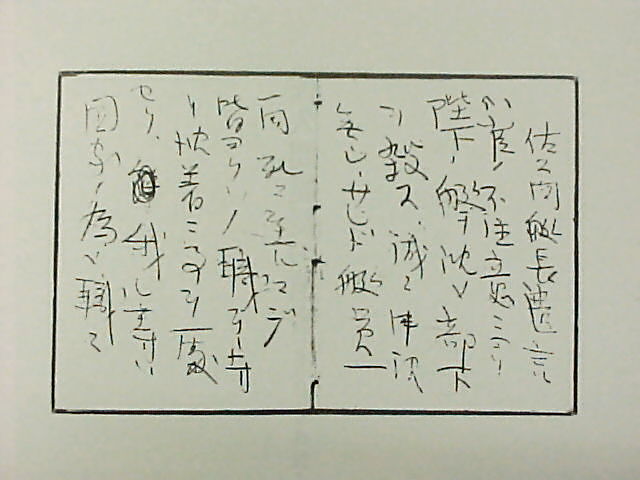 佐久間艇長遺言
小官ノ不注意ニヨリ
陛下ノ艇ヲ沈メ部下
ヲ殺ス、誠ニ申訳
無シ、サレド艇員一
同死ニ至ルマデ
皆ヨクソノ職ヲ守
リ沈着ニ事ヲ処
セリ、我レ等ハ
国家ノ為メ職ニ